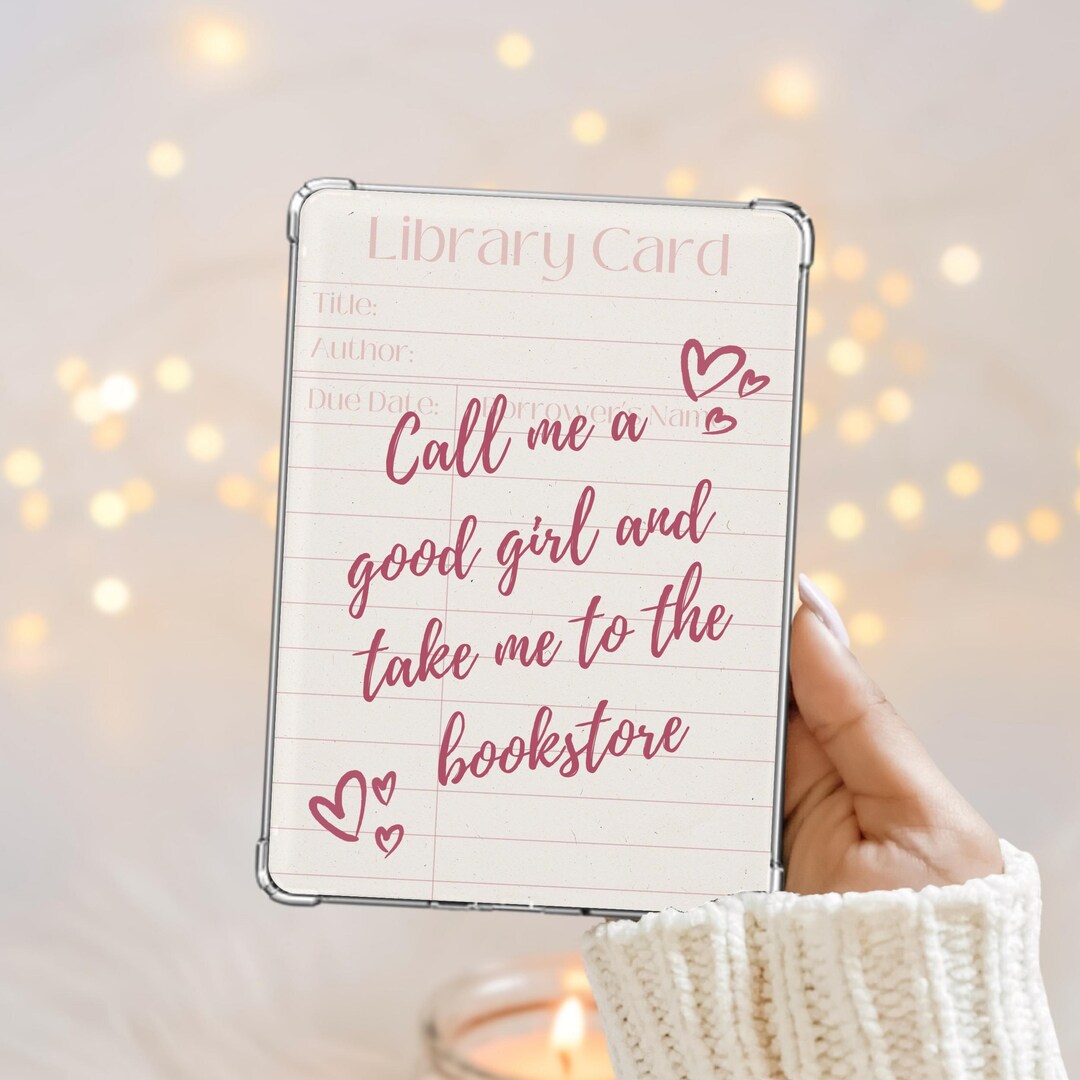 Library Card
Title:
Author:
Due Date: Borrower's Name
Call me a
good girl and
take me to the
bookstore